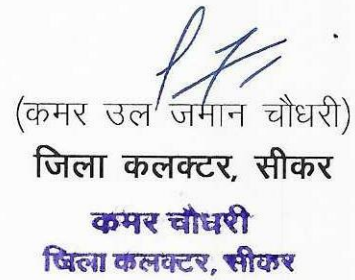 (कमर उल जमान चौधरी)
जिला कलक्टर, सीकर
कमर चौधरी
जिला कलक्टर, सीकर